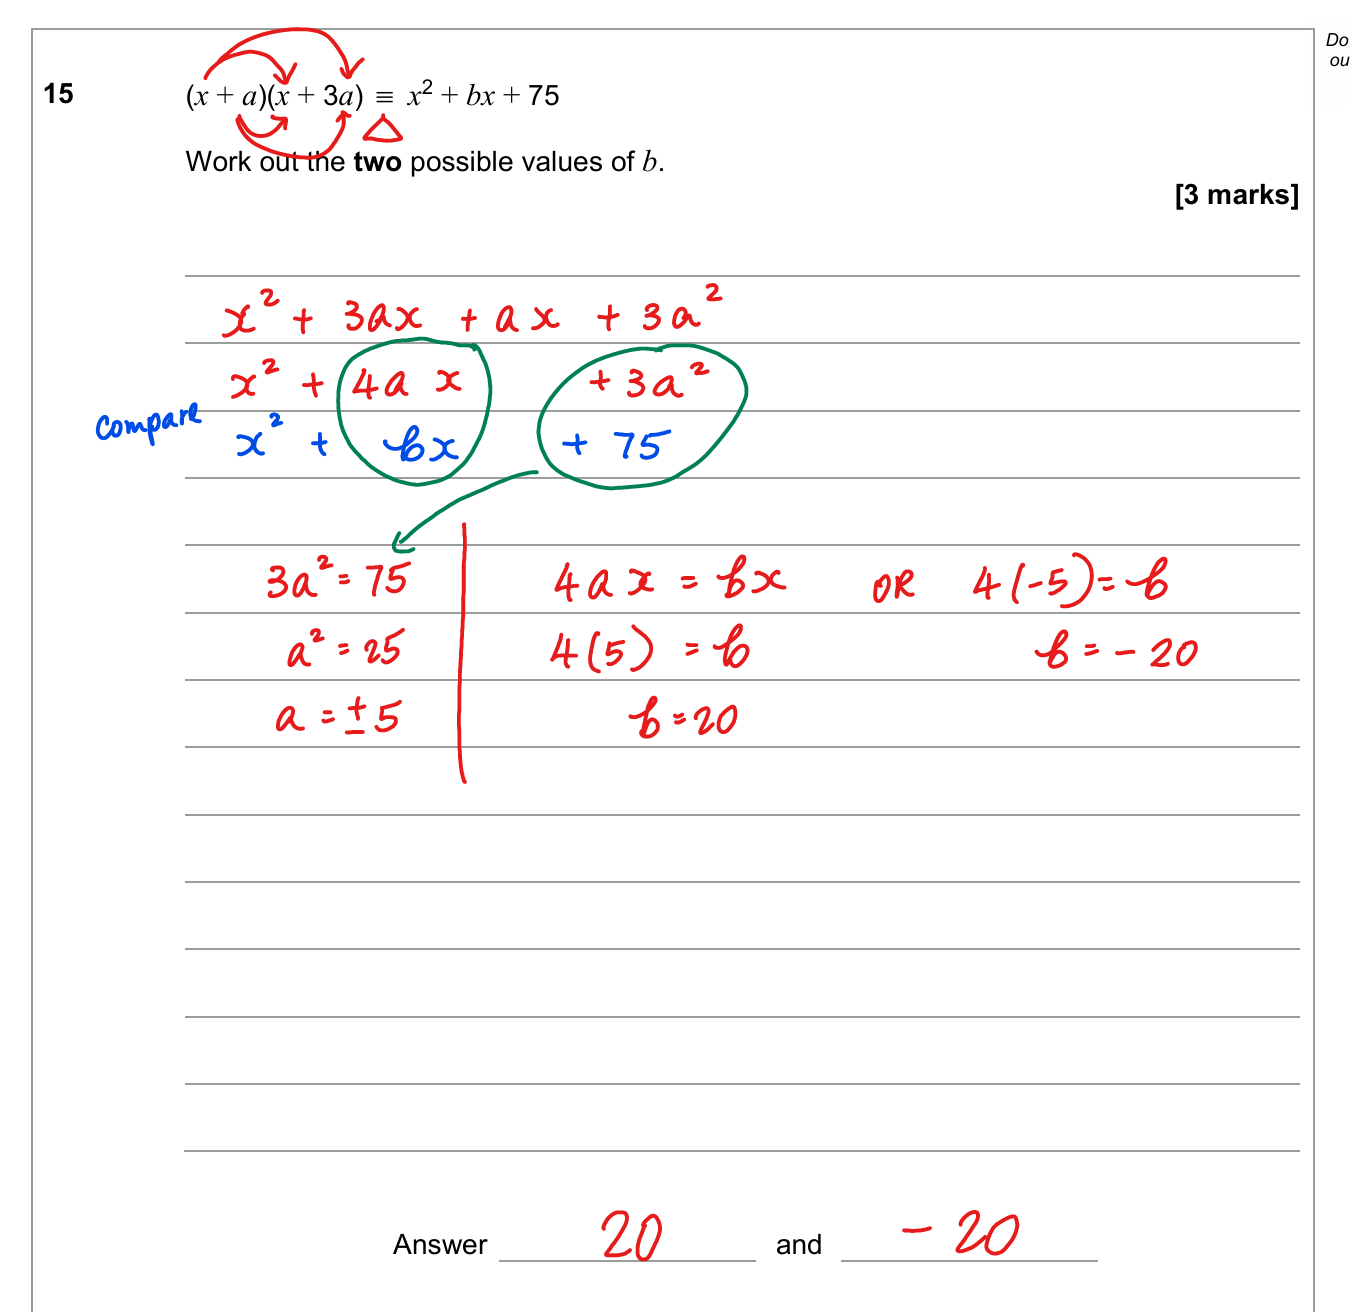 Do
ou
15 (x + a)(x + 3a) ≡ x² + bx + 75
Work out the two possible values of b.
[3 marks]
x² + 3ax + ax + 3a²
x² + 4a x + 3a²
compare x² + bx + 75
3a² = 75 4a x = bx OR 4(-5) = b
a² = 25 4(5) = b b = - 20
a = ± 5 b = 20
Answer 20 and - 20